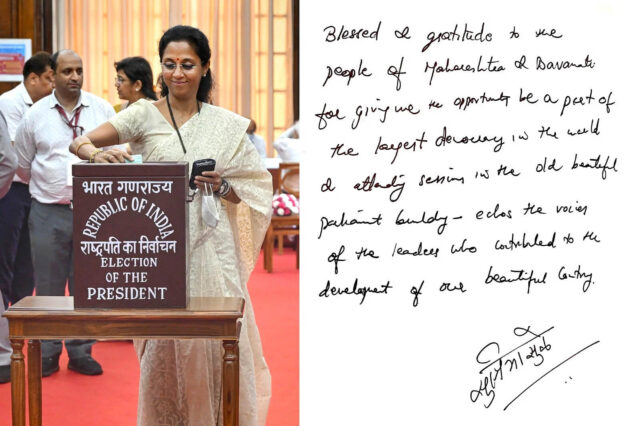 भारत गणराज्य
REPUBLIC OF INDIA
राष्ट्रपति का निर्वाचन
ELECTION
OF THE
PRESIDENT
Blessed & gratitude to the
people of Maharashtra & Baramati
for giving me the opportunity be a part of
the largest democracy in the world
& attending sessions in the old beautiful
parliament building – echos the voices
of the leaders who contributed to the
development of our beautiful Country.